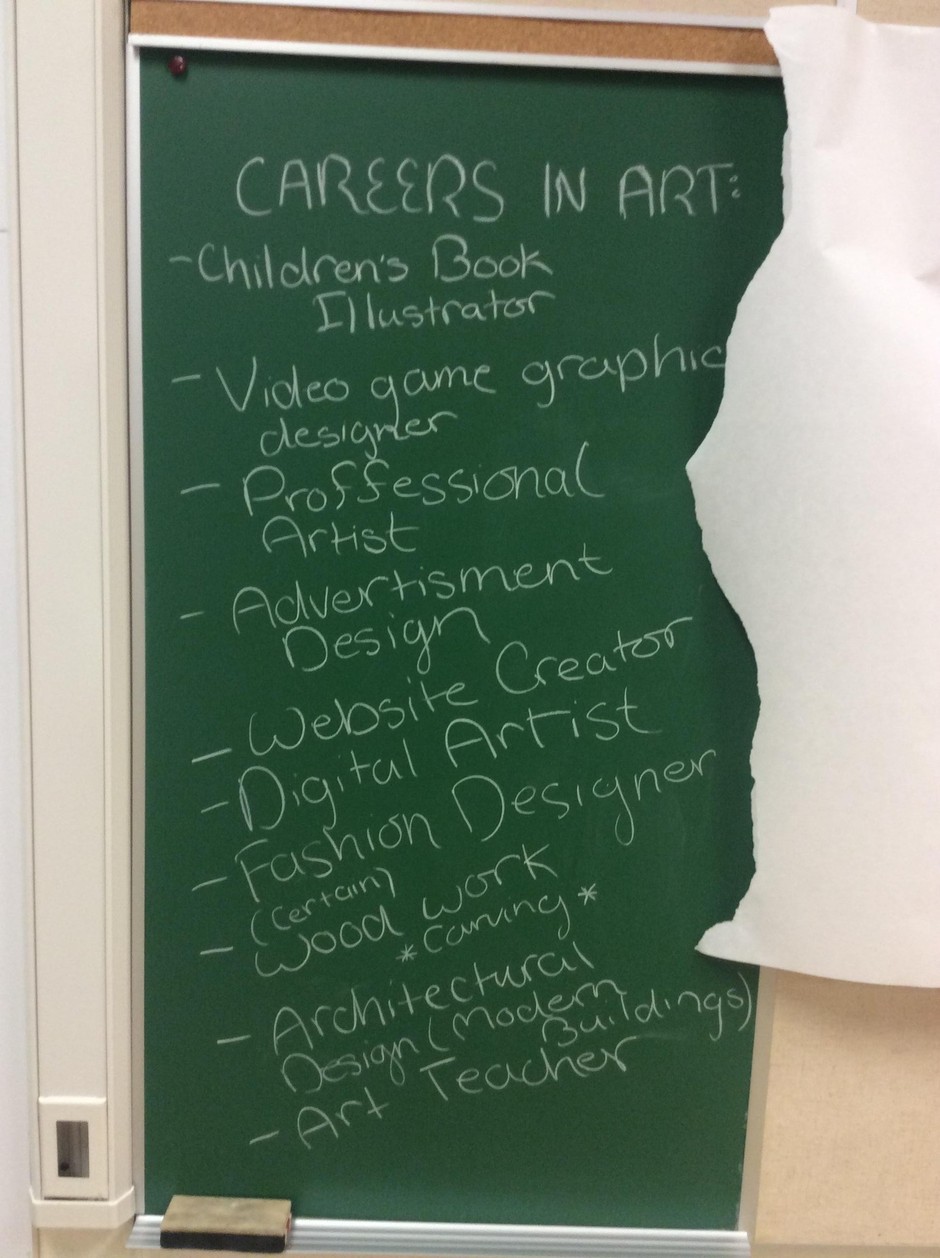 CAREERS IN ART:
- Children's Book
Illustrator
- Video game graphic
designer
- Proffessional
Artist
- Advertisment
Design
- Website Creator
- Digital Artist
- Fashion Designer
(Certain)
- Wood work
*Carving*
- Architectural
Design (Modern
Buildings)
- Art Teacher